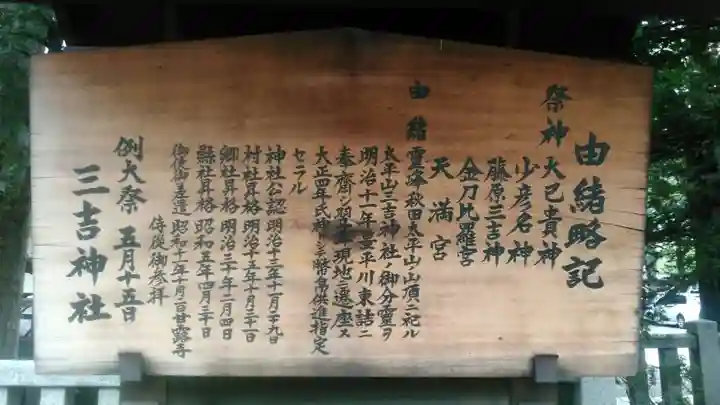 由緒略記
祭神 大己貴神
少彦名神
藤原三吉神
金刀比羅宮
天満宮
由緒 霊峰秋田太平山山頂ニ祀ル
太平山三吉神社ノ御分霊ヲ
明治十一年豊平川東詰ニ
奉齋シ翌年現地ニ遷座ス
大正四年氏神トシ幣帛供進指定
セラル
神社公認 明治十二年十一月二十九日
村社昇格 明治十五年十月三十一日
郷社昇格 明治三十年二月四日
縣社昇格 昭和五年四月三十日
御使御差遣 昭和十一年十月二日甘露寺
侍従御参拝
例大祭 五月十五日
三吉神社